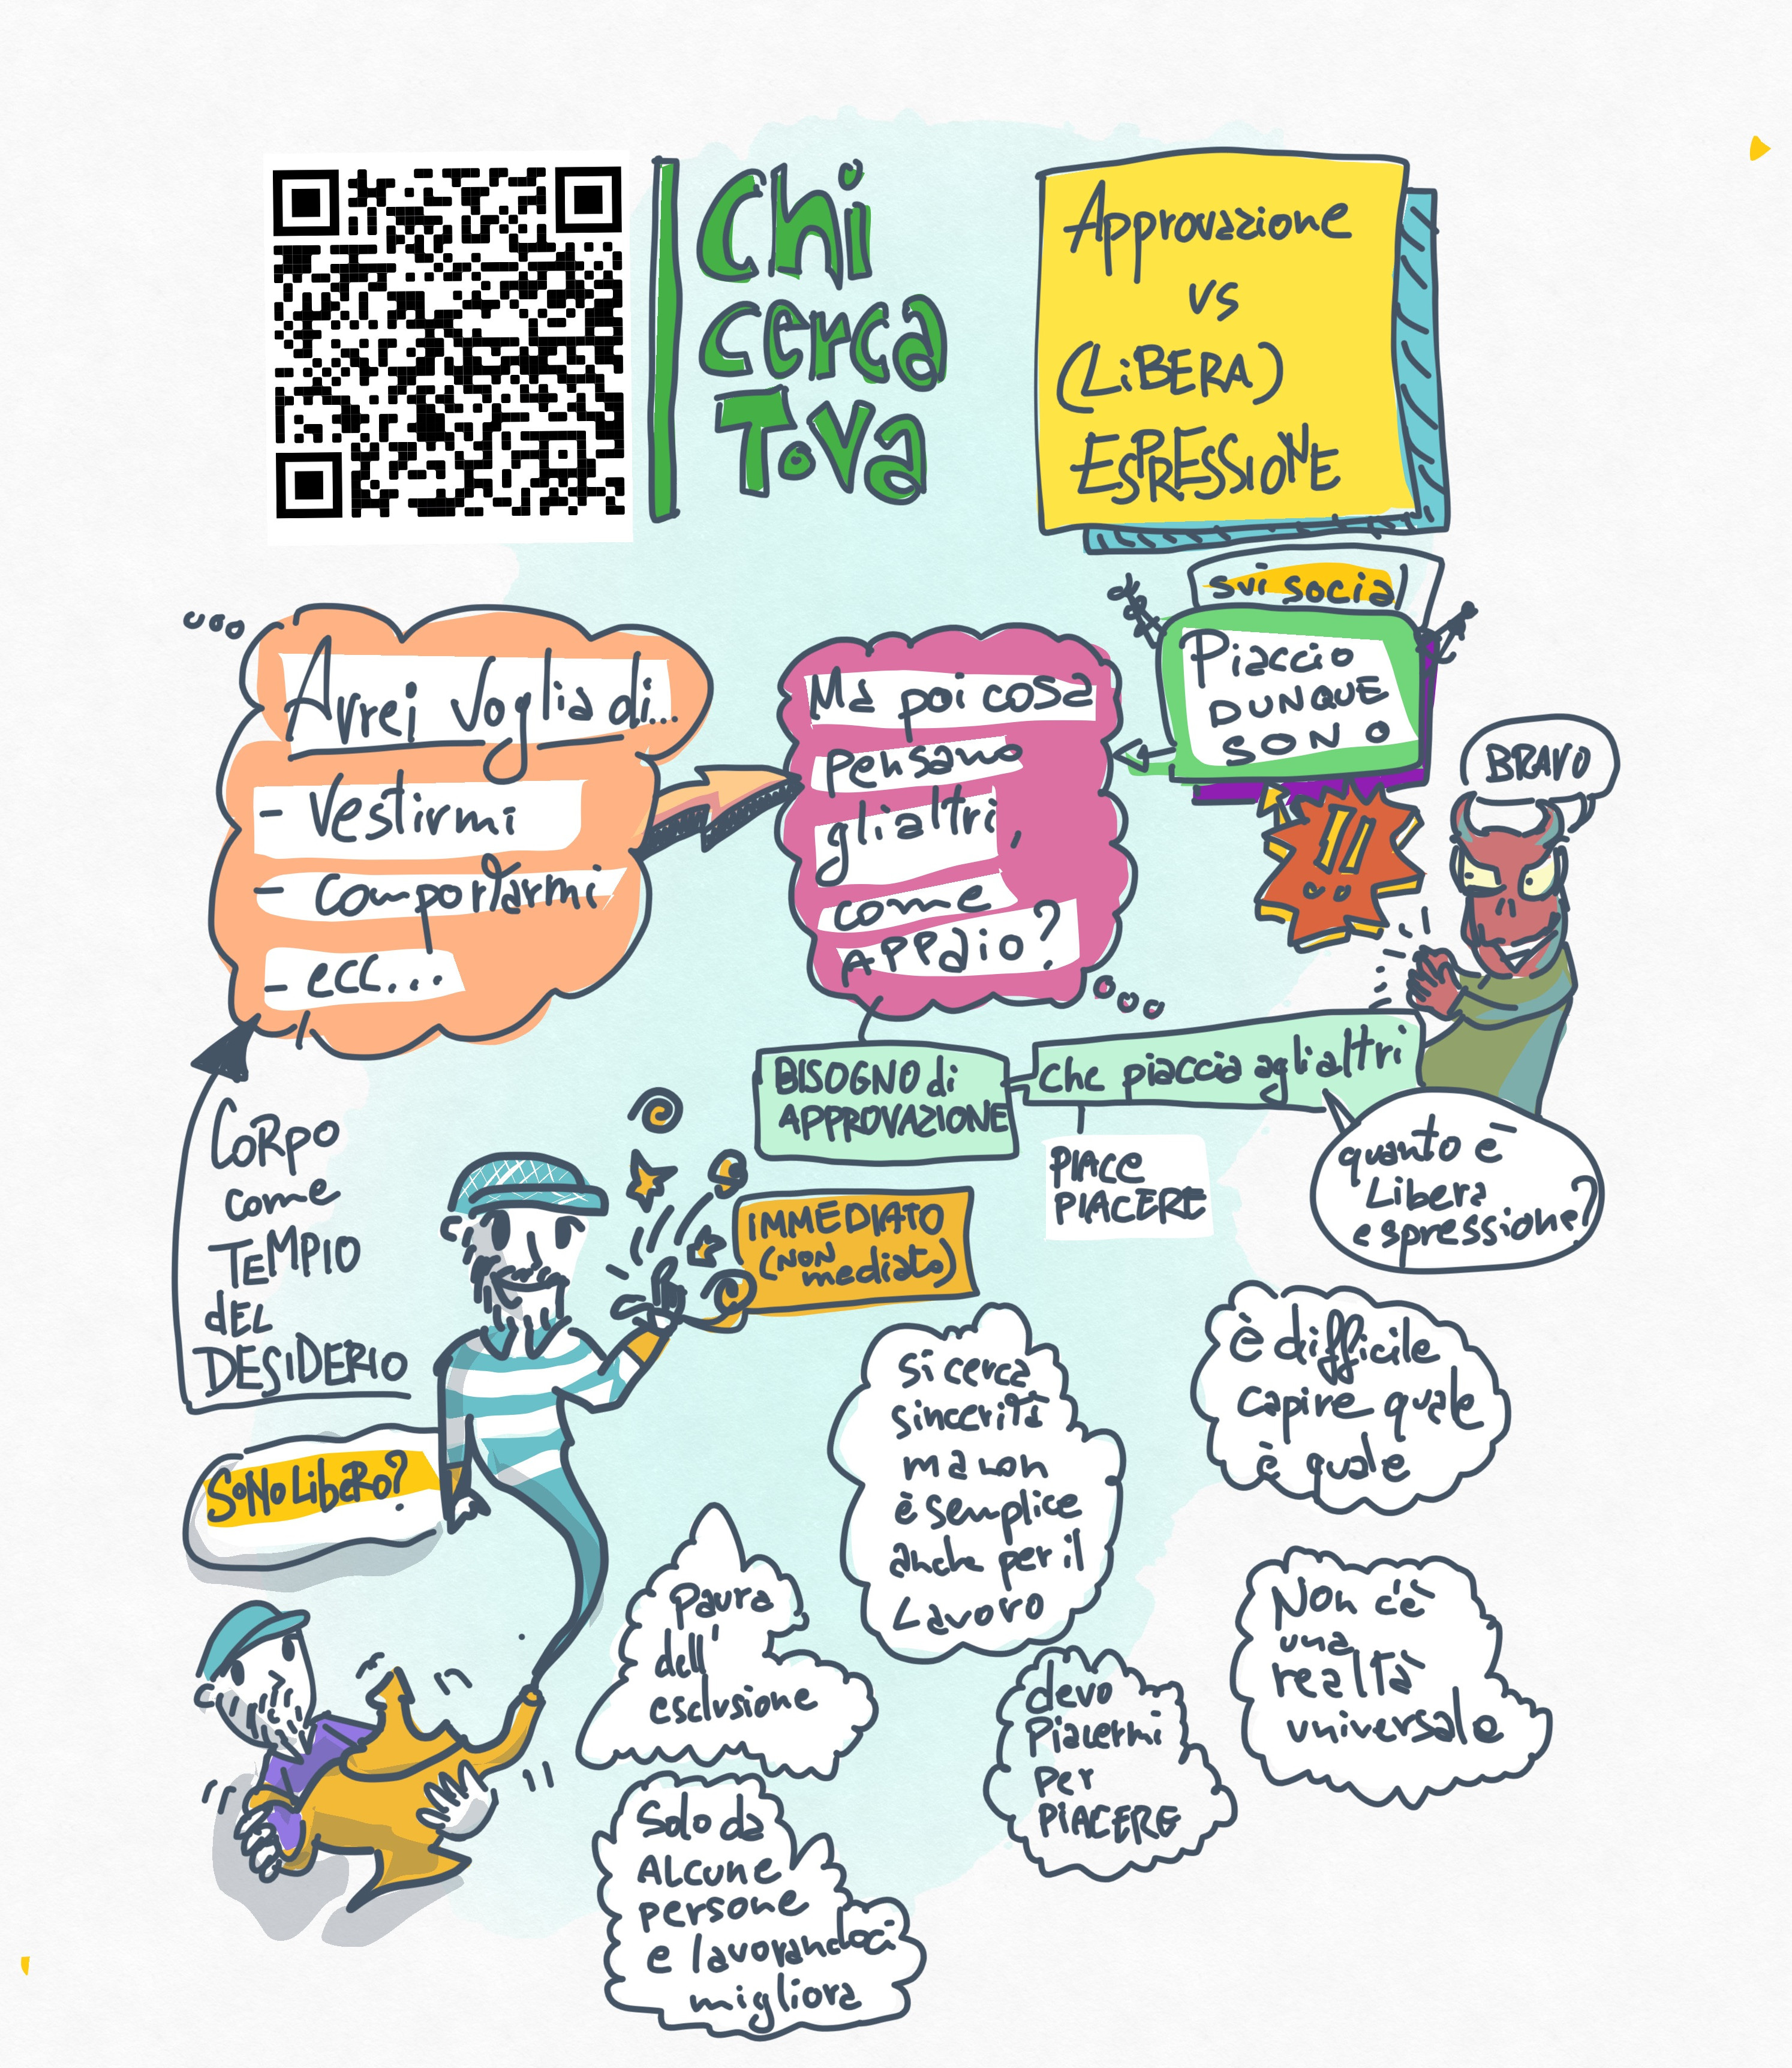 Chi
cerca
ToVa
Approvazione
vs
(LiBERA)
ESPRESSIONE
svi social
Piaccio
DUNQUE
SONO
BRAVO
!!
Avrei Voglia di...
- Vestirmi
- comportarmi
- ecc...
Ma poi cosa
pensano
gli altri,
come
APPaio?
BISOGNO di
APPROVAZIONE
che piaccia agli altri
PIACE
PIACERE
quanto è
Libera
espressione?
CORPO
come
TEMPIO
dEL
DESIDERIO
IMMEDIATO
(NON
mediato)
SONO LIBERO?
Si cerca
sincerità
ma non
è semplice
anche per il
Lavoro
è difficile
capire quale
è quale
Paura
dell'
esclusione
devo
Piacermi
per
PIACERE
Non c'è
una
realtà
universale
Solo da
ALCUNE
persone
e lavorandoci
migliora